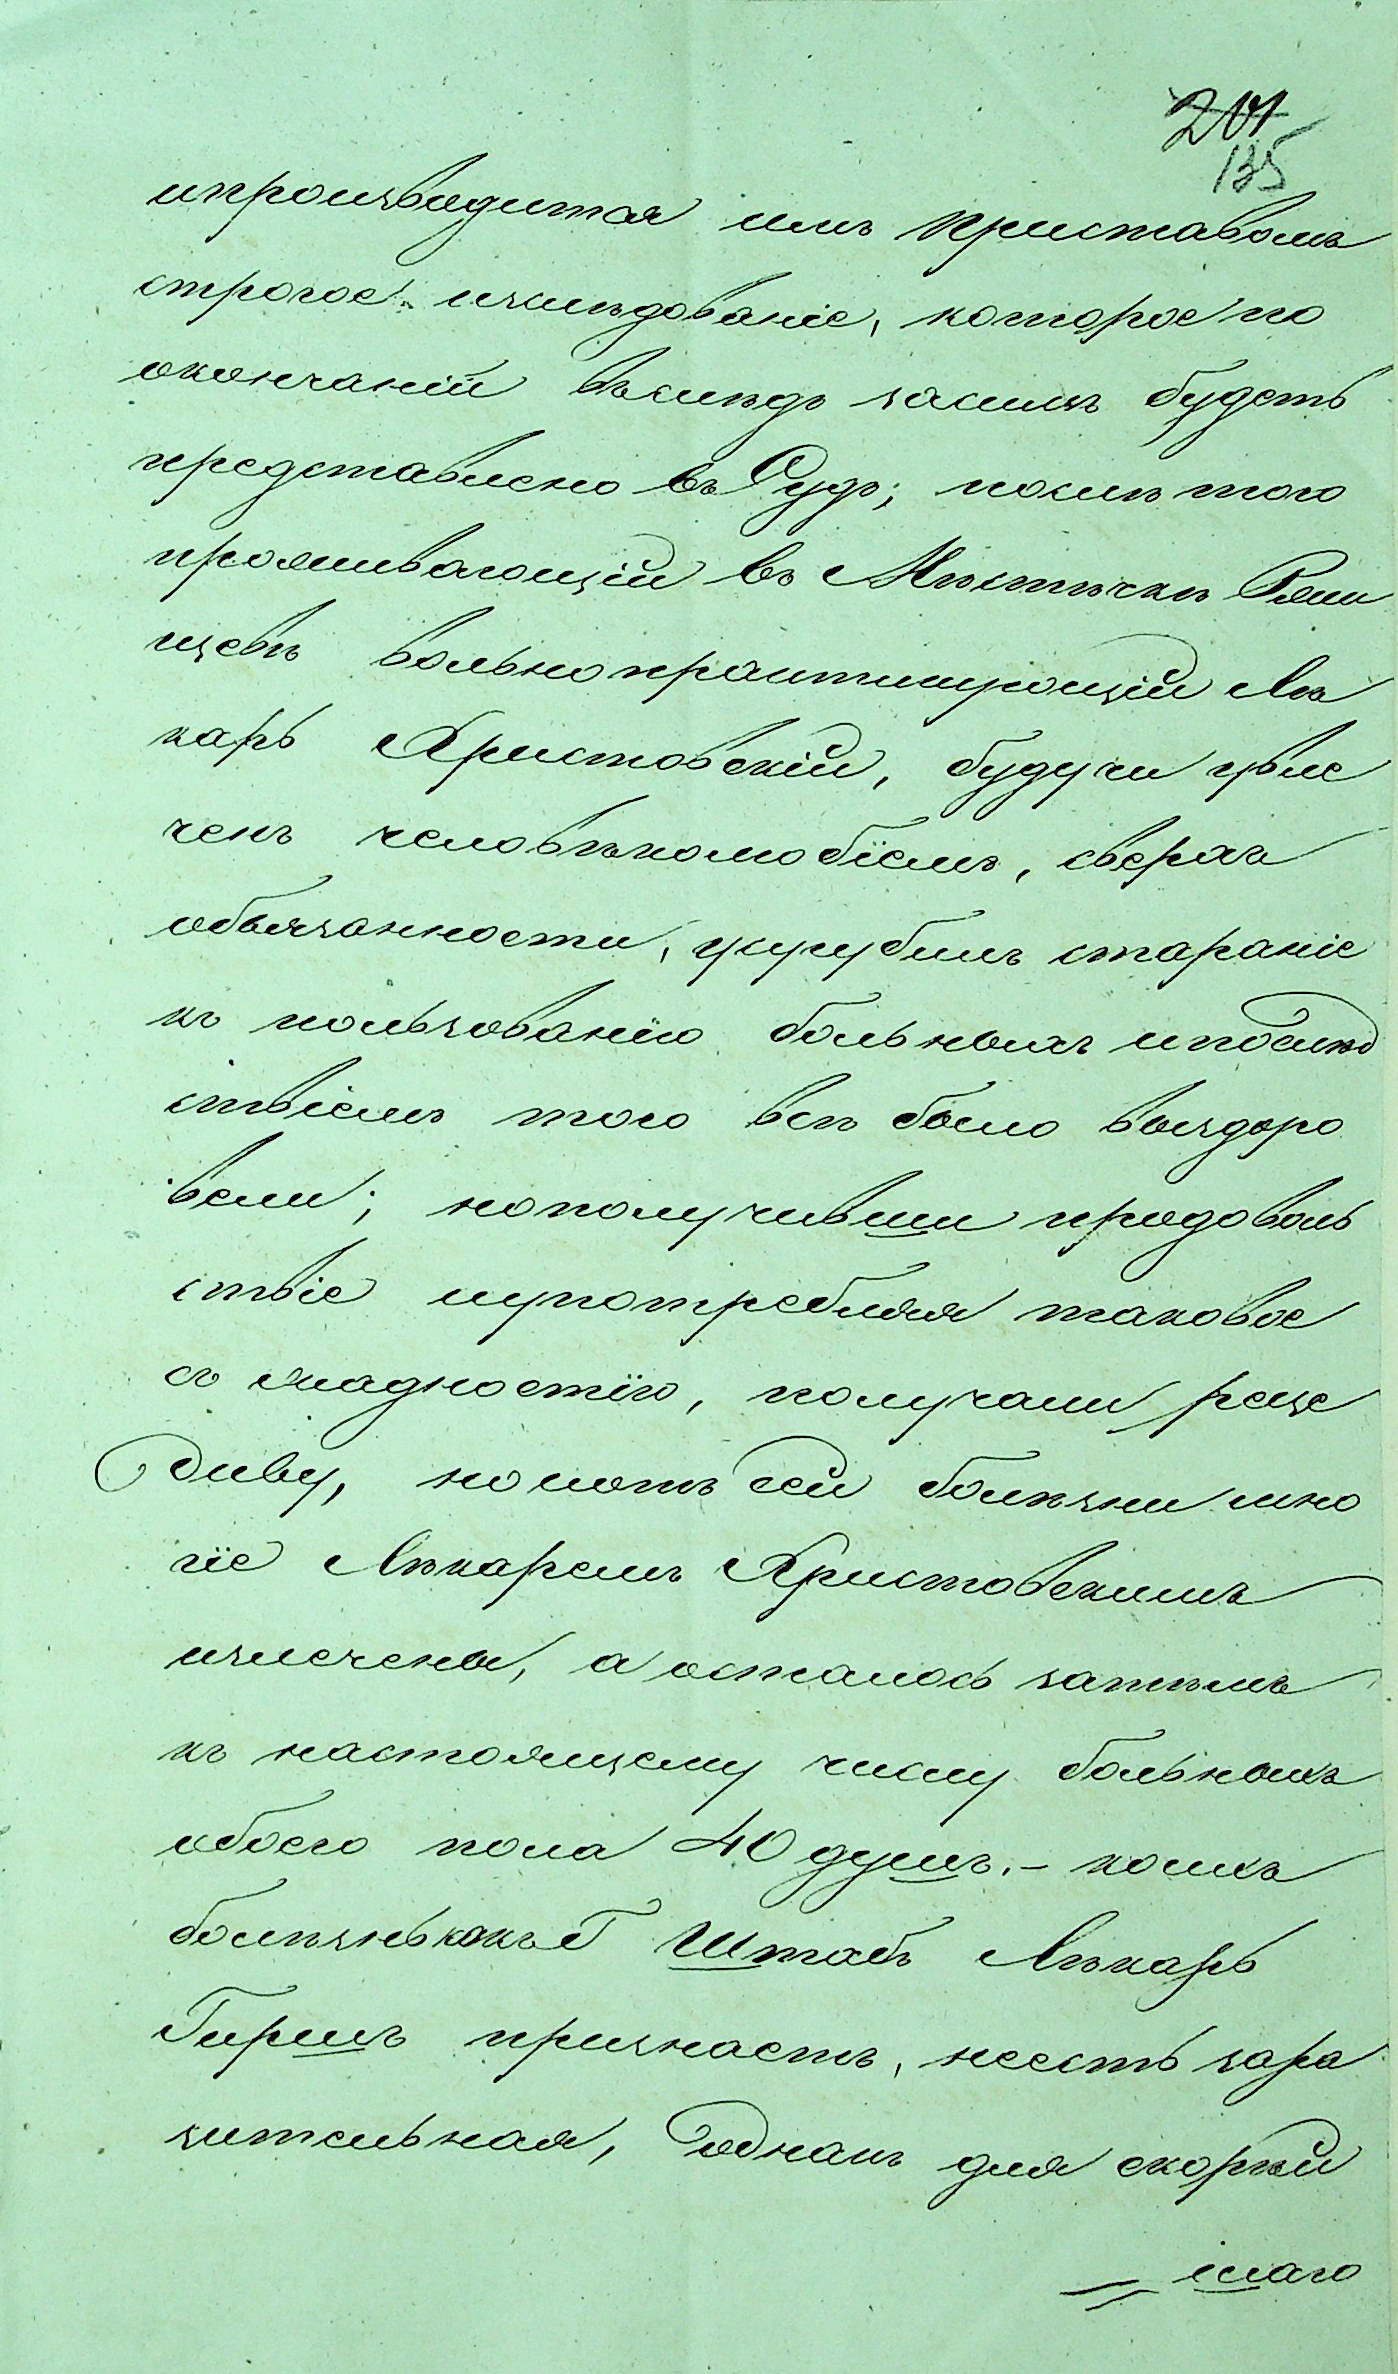 201
135
ипроизводится имъ приставомъ
строгое изслѣдованіе, которое по
окончаніи вслѣдъ засимъ будетъ
представлено въ Судъ; послѣ того
проживающій въ Мѣстечкѣ Ряши
щевѣ вольнопрактикующій Лѣ
карь Христовскій, будучи увле
ченъ человѣколюбіемъ, сверхъ
обязанности, усугубилъ стараніе
къ пользованію больныхъ ипослѣд
ствіемъ того всѣ было выздоро
вели; нополучивши продоволь
ствіе иупотребляя таковое
съ жадностію, получали реце
диву, ноиотъ сей болѣзни мно
гіе Лѣкаремъ Христовскимъ
излечены, а осталось затѣмъ
къ настоящему числу больныхъ
обоего пола 40 душъ. – коихъ
болѣзнькакъ Г Штабъ Лѣкарь
Гиршъ признаетъ, неесть зара
зительная, однакъ для скорѣй
шаго